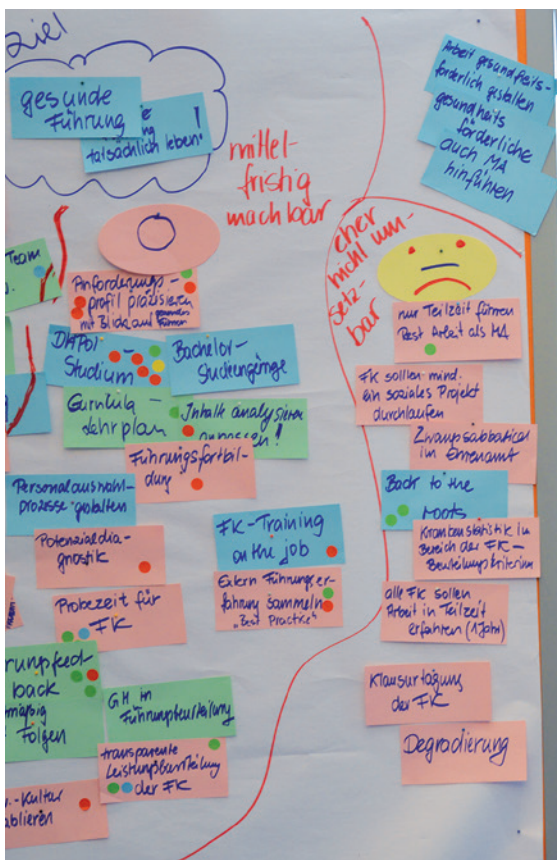 Ziel
gesunde
Führung
tatsächlich leben!
Arbeit gesundheits-
förderlich gestalten
gesundheits
förderliche
auch MA
hinführen
mittel-
fristig
machbar
eher
nicht um-
setz-
bar
Team
Anforderungs-
profil präzisieren
mit Blick auf
DHPol-
Studium
Bachelor-
Studiengänge
Curricula-
Lehrplan
Inhalt analysieren
anpassen!
Führungsfortbil-
dung
Personalauswahl-
prozesse gestalten
Potenzialdia-
gnostik
FK-Training
on the job
Probezeit für
FK
Extern Führungser-
fahrung sammeln
„Best Practice"
back
Folgen
GM in
Führungsbeurteilung
transparente
Leistungsbeurteilung
der FK
-Kultur
nur Teilzeit führen
Rest Arbeit als MA
FK sollen mind.
ein soziales Projekt
durchlaufen
Zwangssabbatical
im Ehrenamt
Back to the
roots
Krankenstatistik im
Bereich der FK-
Beurteilungskriterium
alle FK sollen
Arbeit in Teilzeit
erfahren (1 Jahr)
Klausurtagung
der FK
Degradierung